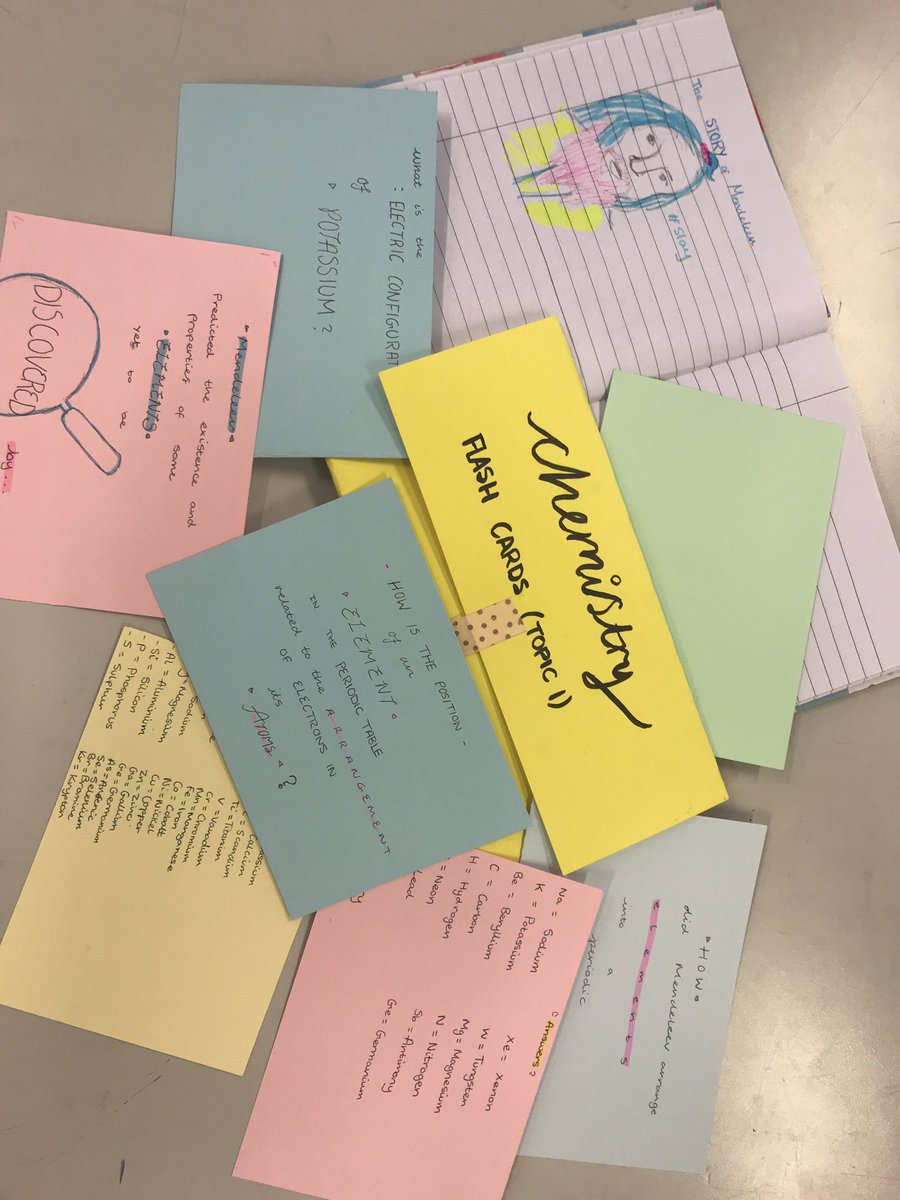 The STORY of Mendeleev
#Story
what is the
: ELECTRIC CONFIGURAT
of
POTASSIUM?
Mendeleev
Predicted the existence and
properties of some
ELEMENTS
yet to be
DISCOVERED
by...
chemistry
FLASH CARDS (TOPIC 1)
- HOW IS THE POSITION -
of an
ELEMENT
IN THE PERIODIC TABLE
related to the ARRANGEMENT
OF ELECTRONS IN
its
ATOMS ?
Al = Aluminium
- Si = Silicon
- P = Phosphorus
- S = Sulphur
Ti = Titanium
V = Vanadium
Cr = Chromium
Co = Cobalt
Ni = Nickel
Cu = Copper
Zn = Zinc
Ga = Gallium
Ge = Germanium
Kr = Krypton
Na = Sodium
K = Potassium
Be = Beryllium
C = Carbon
H = Hydrogen
= Neon
Lead
"Answers"
Xe = Xenon
W = Tungsten
Mg = Magnesium
N = Nitrogen
Sb = Antimony
Ge = Germanium
HOW
did Mendeleev arrange
elements
into a
periodic